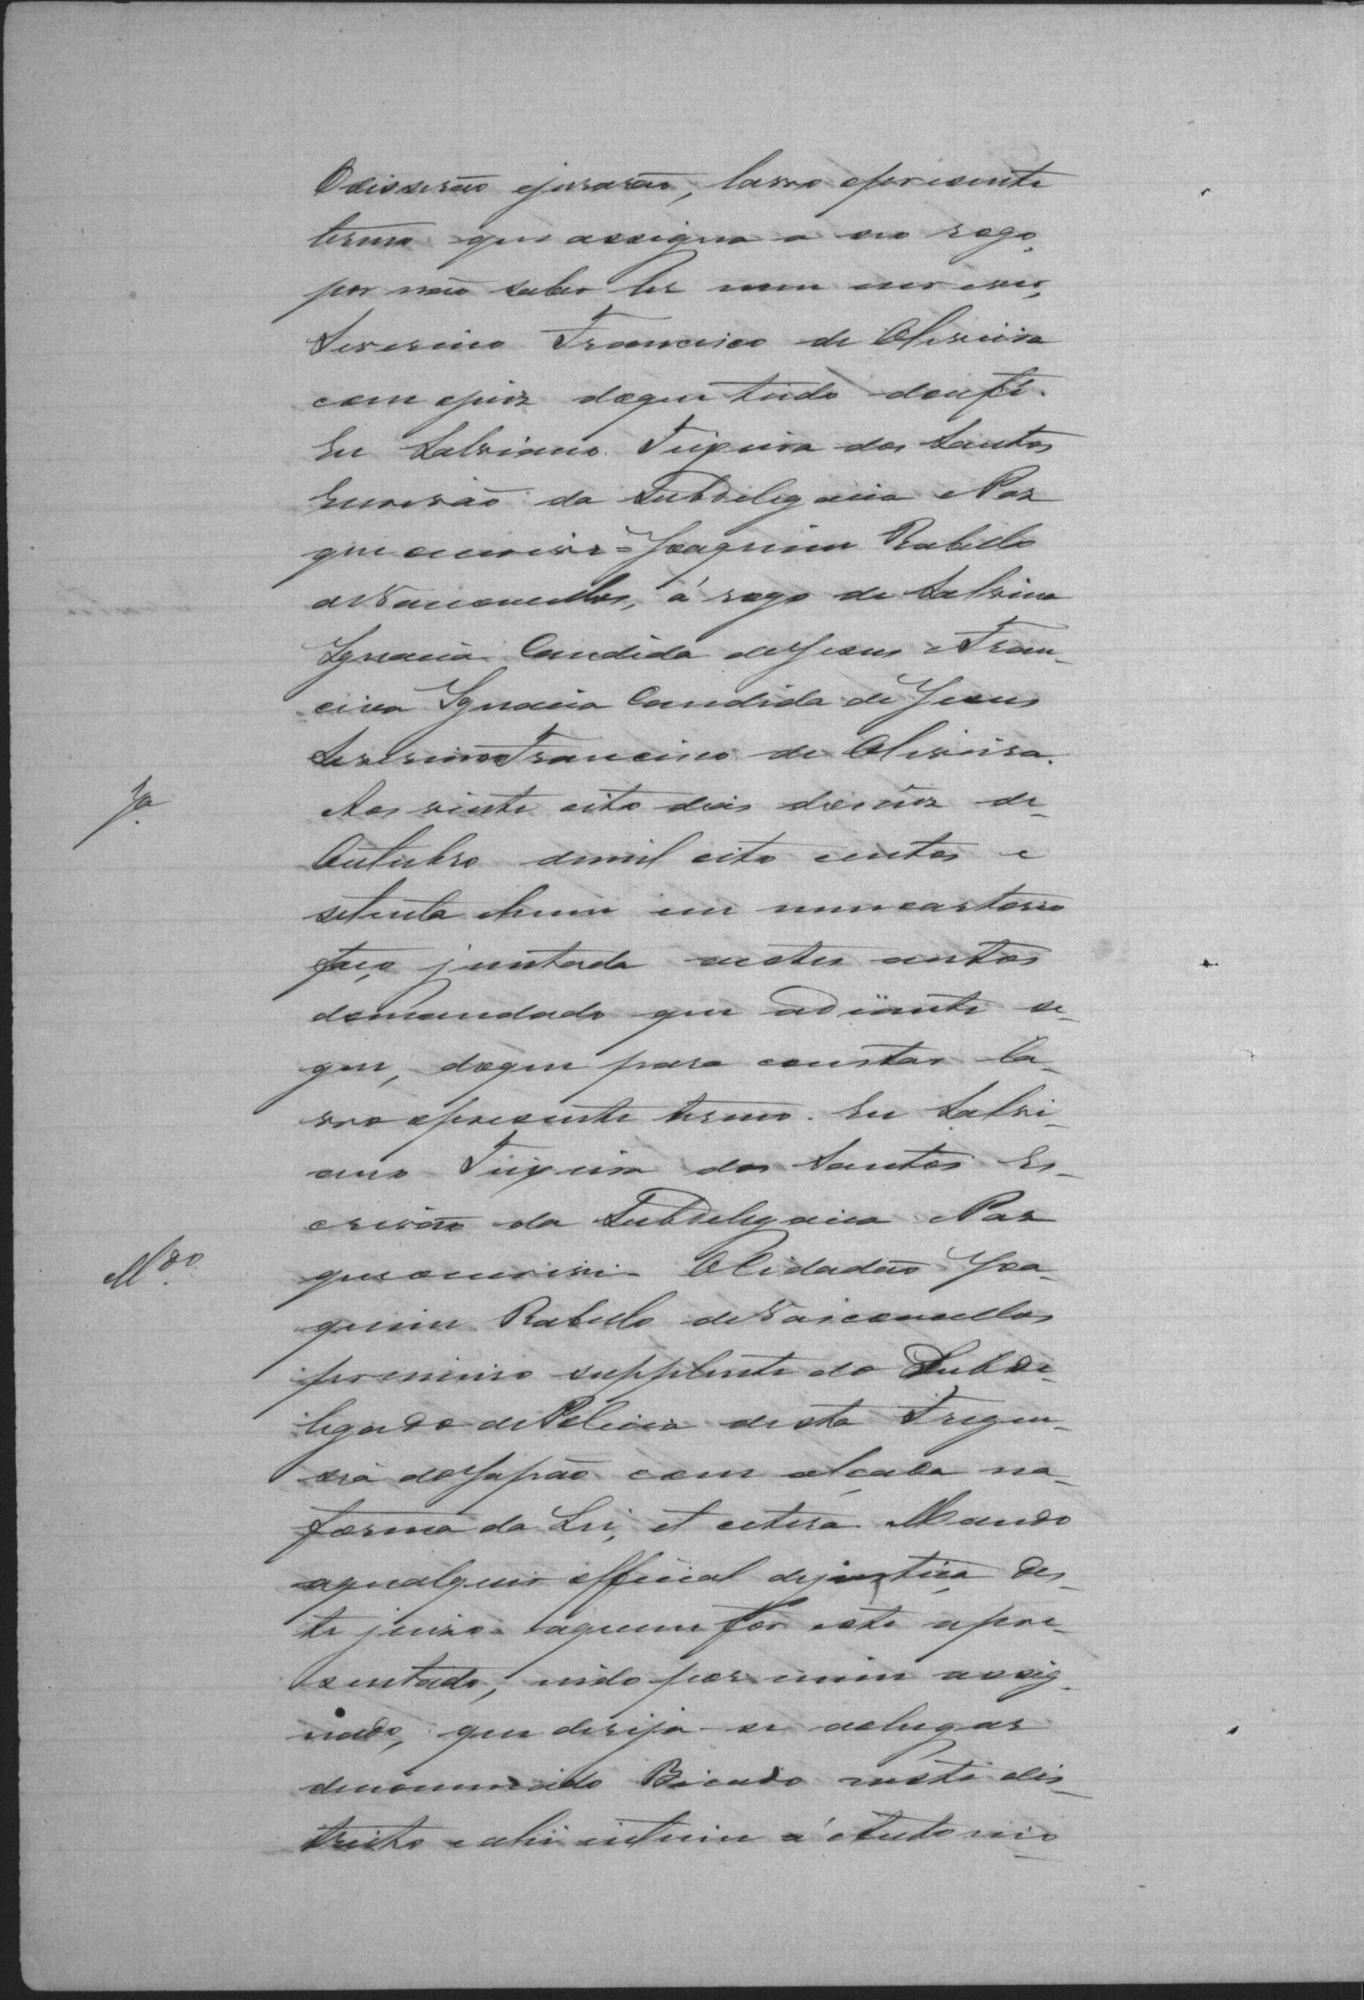 O disserão ejurarão, lavro opresente
termo que assigna a seu rogo,
por não saber ler nem escrever,
Severino Francisco de Oliveira
com ojuiz doque tudo doufé.
Eu Salviano Teixeira dos Santos
Escrivão da Subdelegacia e Paz
que escrevi = Joaquim Rabello
de Vasconcellos, á rogo de Salvina
Ignacia Candida de Jesus e Fran-
cisca Ignacia Candida de Jesus
Severino Francisco de Oliveira.
Jª
Aos vinte oito dias domez de
Outubro demil oito centos e
setenta ehum em meucartorio
faço juntada aestes autos
domandado que adiante se-
gue, doque para constar la-
vro opresente termo. Eu Salvi-
ano Teixeira dos Santos Es-
crivão da Subdelegacia e Paz
Mdo.
queoescrevi O Cidadão Joa-
quim Rabello de Vasconcellos
primeiro supplente do Subde-
legado de Policia desta Fregue-
sia do Japão com alçada na
forma da Lei, et cetera. Mando
aqualquer official dejustiça des-
te juizo aquem for este apre-
sentado, indo por mim assig-
nado, que dirija-se aolugar
denominado Bicudo neste dis-
tricto e ahi intime á Antonio